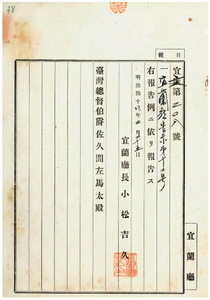 報
日
宜庶第二〇六號
一宜蘭廳告示第十二號
右報告例ニ依リ報告ス
明治四十
年
月
日
宜蘭廳長小松吉久
臺灣總督伯爵佐久間左馬太殿
宜蘭廳